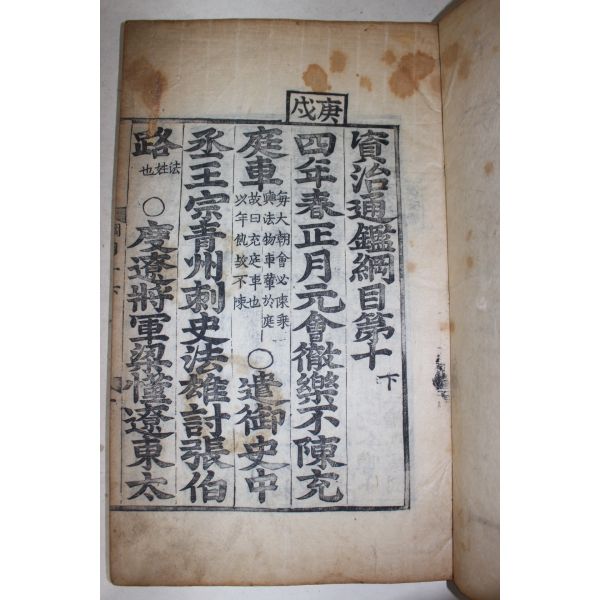 資治通鑑綱目第十 下
庚戌
四年春正月元會徹樂不陳充
庭車
每大朝會必陳乘
輿法物車輦於庭
故曰充庭車也
以年饑故不陳
○遣御史中
丞王宗青州刺史法雄討張伯
路 法姓也 ○度遼將軍梁慬遼東太